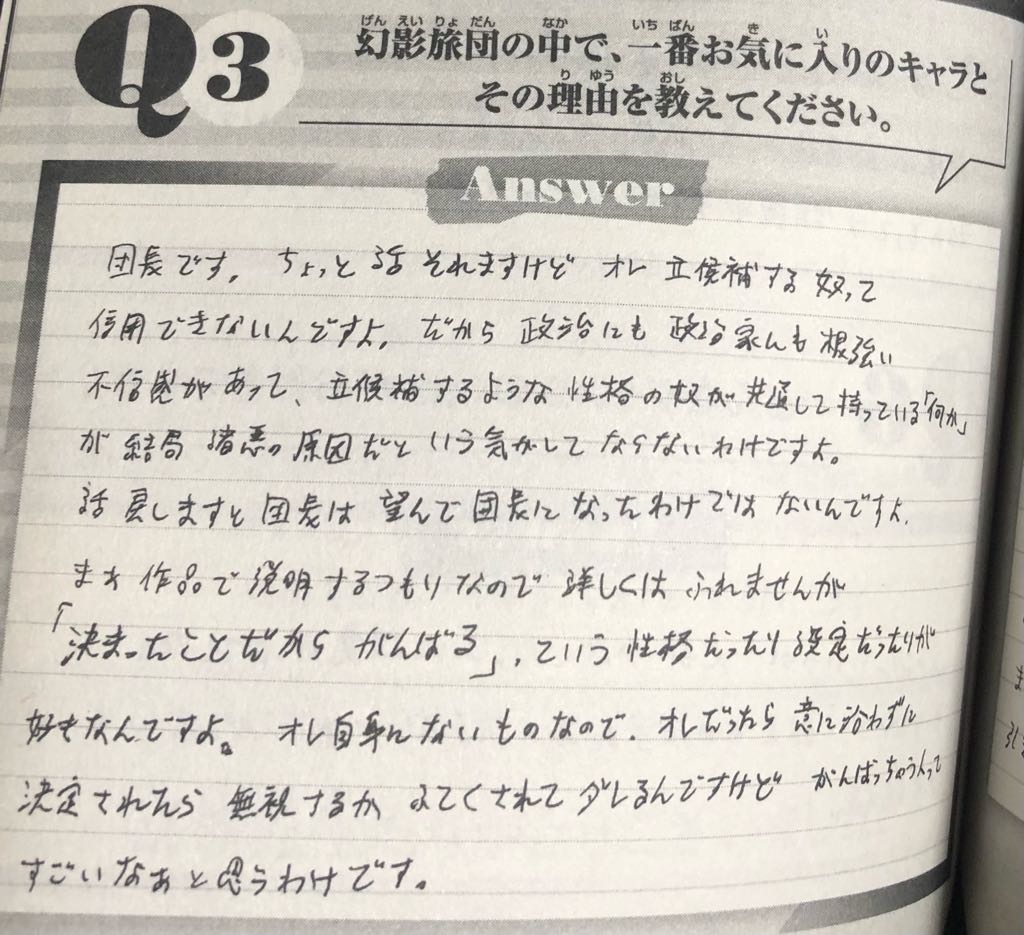 Q3
幻影旅団の中で、一番お気に入りのキャラと
その理由を教えてください。
Answer
団長です。ちょっと話それますけど オレ 立候補する奴って
信用できないんですよ。だから 政治にも 政治家にも 根強い
不信感があって、立候補するような 性格の奴が 共通して 持っている「何か」
が 結局 諸悪の原因だと いう気がして ならないわけですよ。
話 戻しますと 団長は 望んで団長になったわけでは ないんですよ。
まぁ 作品で 説明するつもりなので 詳しくは ふれませんが
「決まったことだから がんばる」、という 性格だったり 設定だったりが
好きなんですよ。オレ自身にないものなので。オレだったら 意に沿わずに
決定されたら 無視するか ふてくされて ダレるんですけど がんばっちゃう人って
すごいなぁと思うわけです。